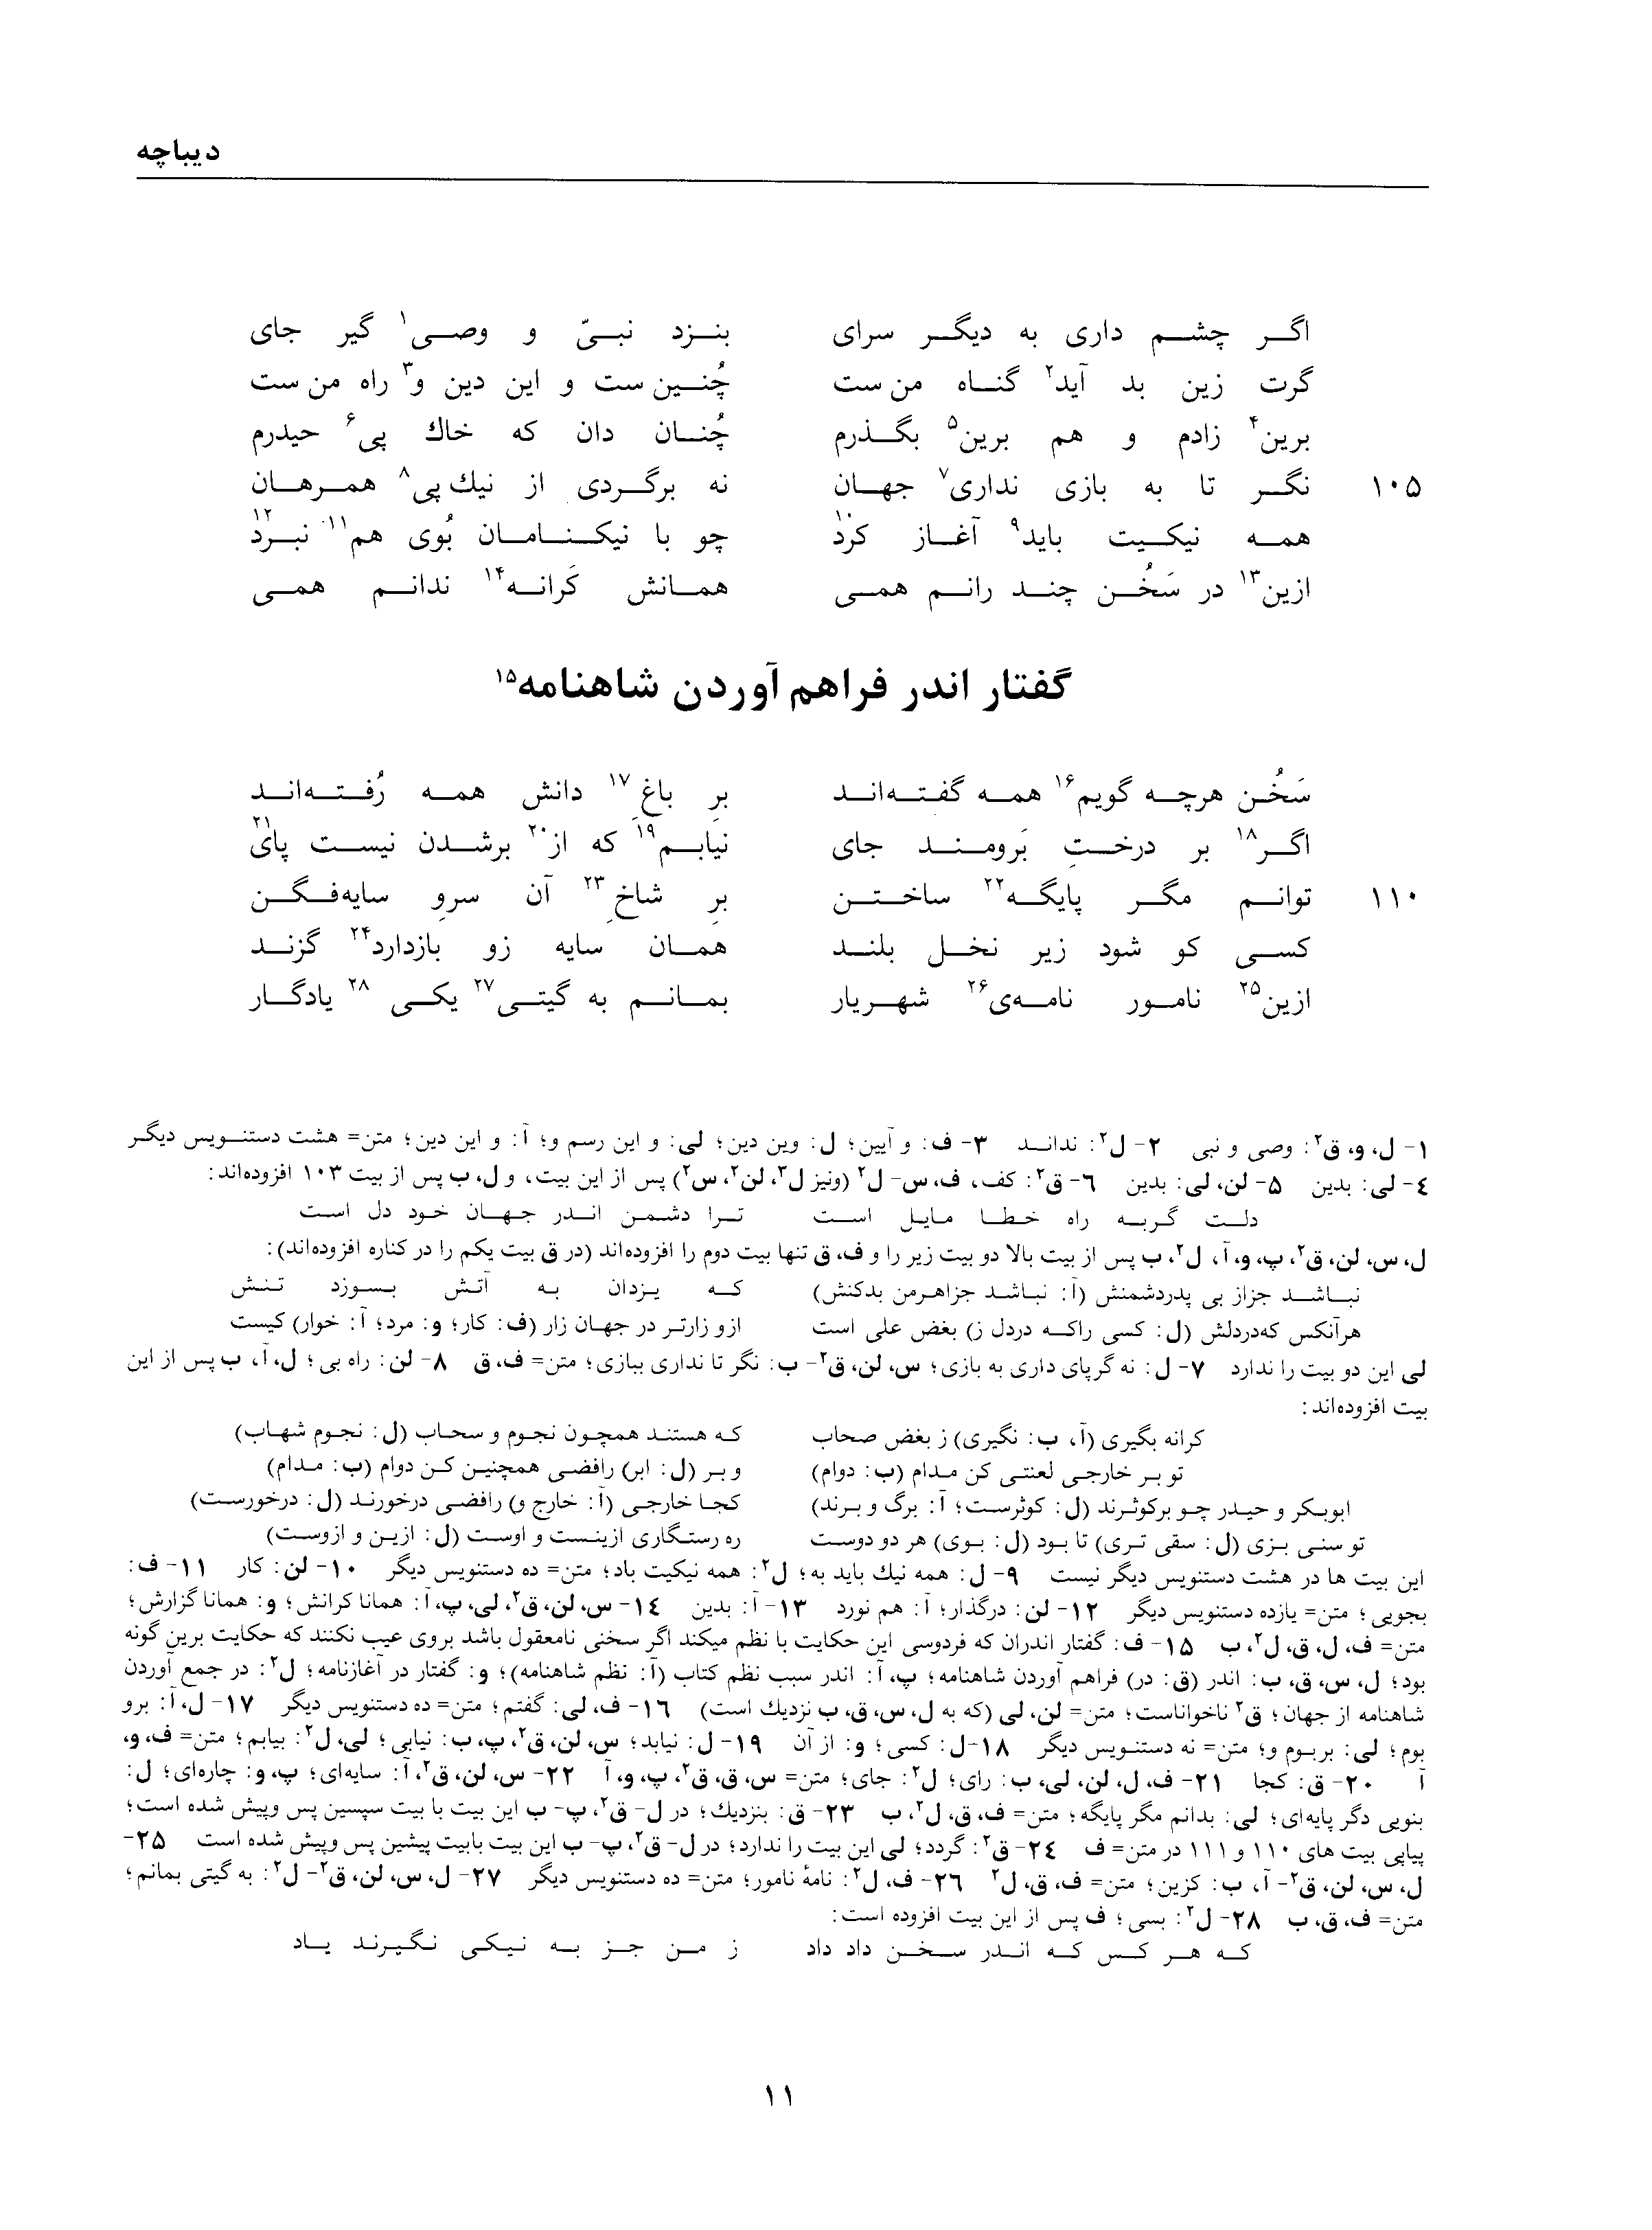 دیباچه
اگر چشم داری به دیگر سرای بنزد نبیّ و وصی۱ گیر جای
گرت زین بد آید۲ گناه من‌ست چُنین‌ست و این دین و۳ راه من‌ست
برین۴ زادم و هم برین۵ بگذرم چُنان دان که خاك پی۶ حیدرم
۱۰۵ نگر تا به بازی نداری۷ جهان نه برگردی از نیك‌پی۸ همرهان
همه نیکیت باید۹ آغاز کرد۱۰ چو با نیکنامان بُوی هم۱۱ نبرد۱۲
ازین۱۳ در سَخُن چند رانم همی همانش کَرانه۱۴ ندانم همی
گفتار اندر فراهم آوردن شاهنامه۱۵
سَخُن هرچه گویم۱۶ همه گفته‌اند برِ باغِ۱۷ دانش همه رُفته‌اند
اگر۱۸ بر درختِ بَرومند جای نیابم۱۹ که از۲۰ برشدن نیست پای۲۱
۱۱۰ توانم مگر پایگه۲۲ ساختن برِ شاخِ۲۳ آن سروِ سایه‌فگن
کسی کو شود زیر نخل بلند همان سایه زو بازدارد۲۴ گزند
ازین۲۵ نامور نامه‌ی۲۶ شهریار بمانم به گیتی۲۷ یکی۲۸ یادگار
۱- ل، و، ق۲: وصی و نبی ۲- ل۲: نداند ۳- ف: و آیین؛ ل: وین دین؛ لی: و این رسم و؛ آ: و این دین؛ متن= هشت دستنویس دیگر
۴- لی: بدین ۵- لن، لی: بدین ۶- ق۲: کف، ف، س- ل۲ (ونیز ل۳، لن۲، س۲) پس از این بیت، و ل، ب پس از بیت ۱۰۳ افزوده‌اند:
دلت گربه راه خطا مایل است ترا دشمن اندر جهان خود دل است
ل، س، لن، ق۲، پ، و، آ، ل۲، ب پس از بیت بالا دو بیت زیر را و ف، ق تنها بیت دوم را افزوده‌اند (در ق بیت یکم را در کناره افزوده‌اند):
نباشد جزاز بی پدردشمنش (آ: نباشد جزاهرمن بدکنش) که یزدان به آتش بسوزد تنش
هرآنکس که‌دردلش (ل: کسی راکه دردل ز) بغض علی است ازو زارتر در جهان زار (ف: کار؛ و: مرد؛ آ: خوار) کیست
لی این دو بیت را ندارد ۷- ل: نه گرپای داری به بازی؛ س، لن، ق۲- ب: نگر تا نداری ببازی؛ متن= ف، ق ۸- لن: راه بی؛ ل، آ، ب پس از این
بیت افزوده‌اند:
کرانه بگیری (آ، ب: نگیری) ز بغض صحاب که هستند همچون نجوم و سحاب (ل: نجوم شهاب)
تو بر خارجی لعنتی کن مدام (ب: دوام) و بر (ل: ابر) رافضی همچنین کن دوام (ب: مدام)
ابوبکر و حیدر چو برکوثرند (ل: کوثرست؛ آ: برگ و برند) کجا خارجی (آ: خارج و) رافضی درخورند (ل: درخورست)
تو سنی بزی (ل: سقی تری) تا بود (ل: بوی) هر دو دوست ره رستگاری ازینست و اوست (ل: ازین و ازوست)
این بیت ها در هشت دستنویس دیگر نیست ۹- ل: همه نیك باید به؛ ل۲: همه نیکیت باد؛ متن= ده دستنویس دیگر ۱۰- لن: کار ۱۱- ف:
بجویی؛ متن= یازده دستنویس دیگر ۱۲- لن: درگذار؛ آ: هم نورد ۱۳- آ: بدین ۱۴- س، لن، ق۲، لی، پ، آ: همانا کرانش؛ و: همانا گزارش؛
متن= ف، ل، ق، ل۲، ب ۱۵- ف: گفتار اندران که فردوسی این حکایت با نظم میکند اگر سخنی نامعقول باشد بروی عیب نکنند که حکایت برین گونه
بود؛ ل، س، ق، ب: اندر (ق: در) فراهم آوردن شاهنامه؛ پ، آ: اندر سبب نظم کتاب (آ: نظم شاهنامه)؛ و: گفتار در آغازنامه؛ ل۲: در جمع آوردن
شاهنامه از جهان؛ ق۲ ناخواناست؛ متن= لن، لی (که به ل، س، ق، ب نزدیك است) ۱۶- ف، لی: گفتم؛ متن= ده دستنویس دیگر ۱۷- ل، آ: برو
بوم؛ لی: بربوم و؛ متن= نه دستنویس دیگر ۱۸-ل: کسی؛ و: از آن ۱۹- ل: نیابد؛ س، لن، ق۲، پ، ب: نیابی؛ لی، ل۲: بیابم؛ متن= ف، و،
آ ۲۰- ق: کجا ۲۱- ف، ل، لن، لی، ب: رای؛ ل۲: جای؛ متن= س، ق، ق۲، پ، و، آ ۲۲- س، لن، ق۲، آ: سایه‌ای؛ پ، و: چاره‌ای؛ ل:
بنویی دگر پایه‌ای؛ لی: بدانم مگر پایگه؛ متن= ف، ق، ل۲، ب ۲۳- ق: بنزدیك؛ در ل- ق۲، پ- ب این بیت با بیت سپسین پس وپیش شده است؛
پیاپی بیت های ۱۱۰ و ۱۱۱ در متن= ف ۲۴- ق۲: گردد؛ لی این بیت را ندارد؛ در ل- ق۲، پ- ب این بیت بابیت پیشین پس وپیش شده است ۲۵-
ل، س، لن، ق۲- آ، ب: کزین؛ متن= ف، ق، ل۲ ۲۶- ف، ل۲: نامهٔ نامور؛ متن= ده دستنویس دیگر ۲۷- ل، س، لن، ق۲- ل۲: به گیتی بمانم؛
متن= ف، ق، ب ۲۸- ل۲: بسی؛ ف پس از این بیت افزوده است:
که هر کس که اندر سخن داد داد ز من جز به نیکی نگیرند یاد
۱۱